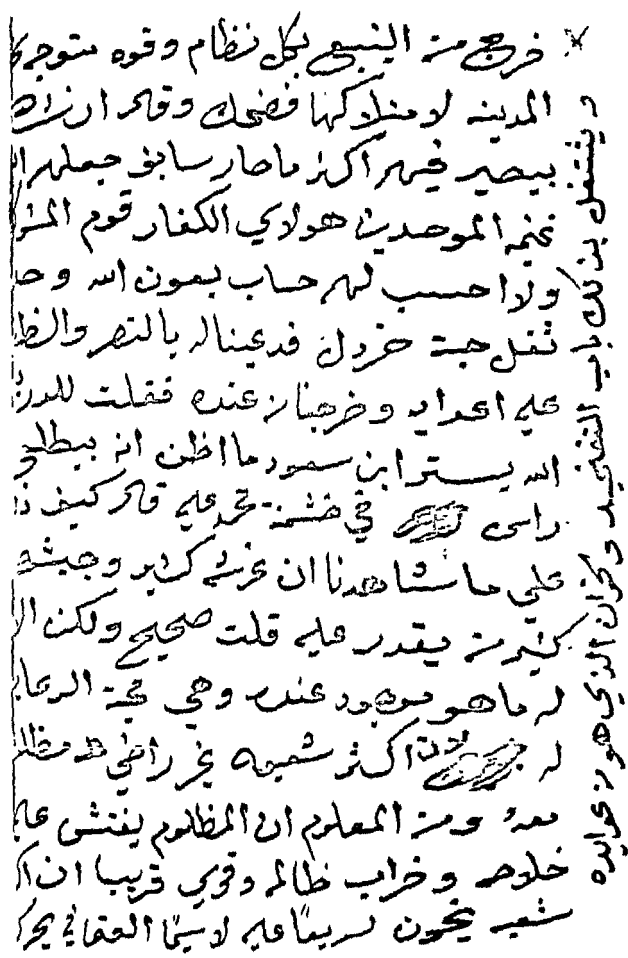 فرجع من الينبع بكل نظام وقوه متوجه
المدينه لامتلاكها فضحك وقال ان نراه
بيصير فيهم اكثر ما صار سابق جعلهم
غنيمه الموحدين هولاي الكفار قوم
ولا احسب لهم حساب بعون الله
ثقل حبة خردل فدعينا له بالنصر
علي اعدايه وخرجنا من عنده فقلت
الله يستر ابن سعود ما اظن انه
راسي في خشمة علي قال كيف
علي ما شاهدنا ان عزه كبير وجيشه
كثير من يقدر عليه قلت صحيح ولكن
له ما هو موجود عنده وهي محبة
له لان اكثر شعبه غير راضي
معه ومن المعلوم ان المظلوم يفتش علي
خلاصه وخراب ظالمه وقوي قريبا ان
شعبه يخون سريعا عليه لاسيما العثماني
ويشتغل بذلك باب التفنيد وكخوان الذي هو من عوايده